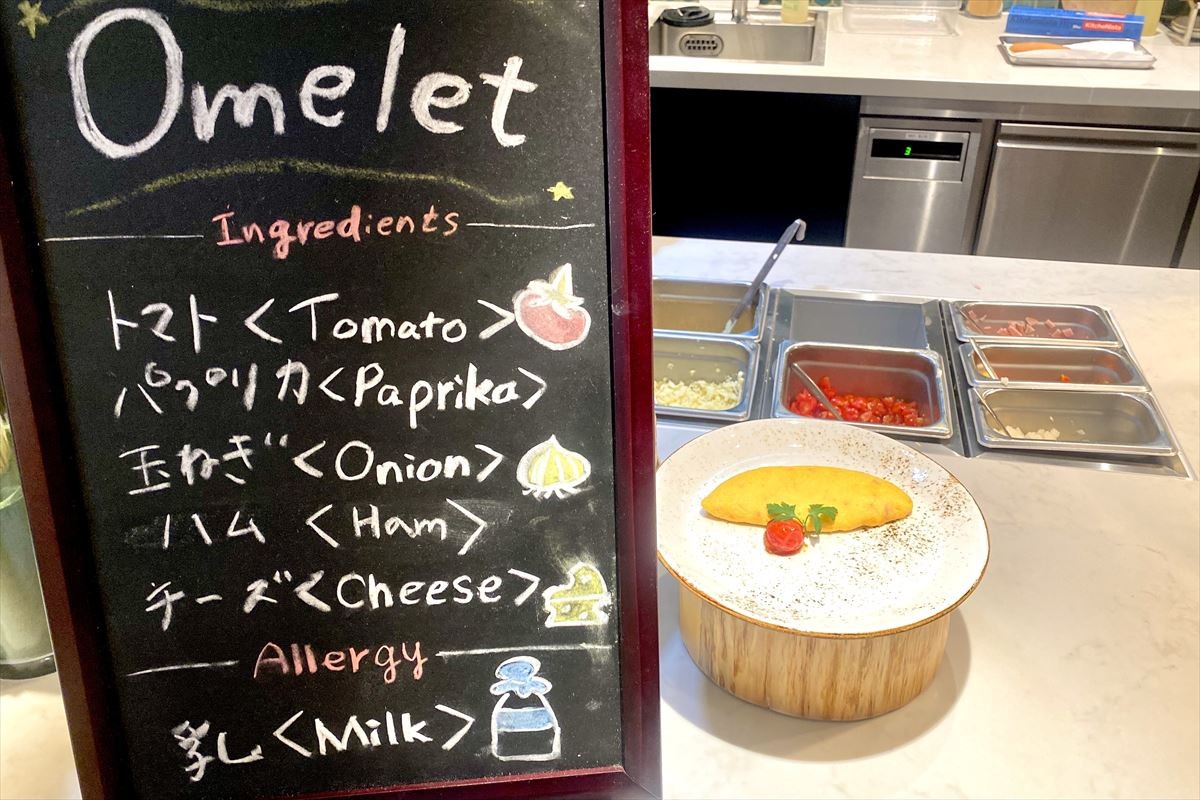 Omelet
Ingredients
トマト<Tomato>
パプリカ<Paprika>
玉ねぎ<Onion>
ハム <Ham>
チーズ<Cheese>
Allergy
乳<Milk>
3